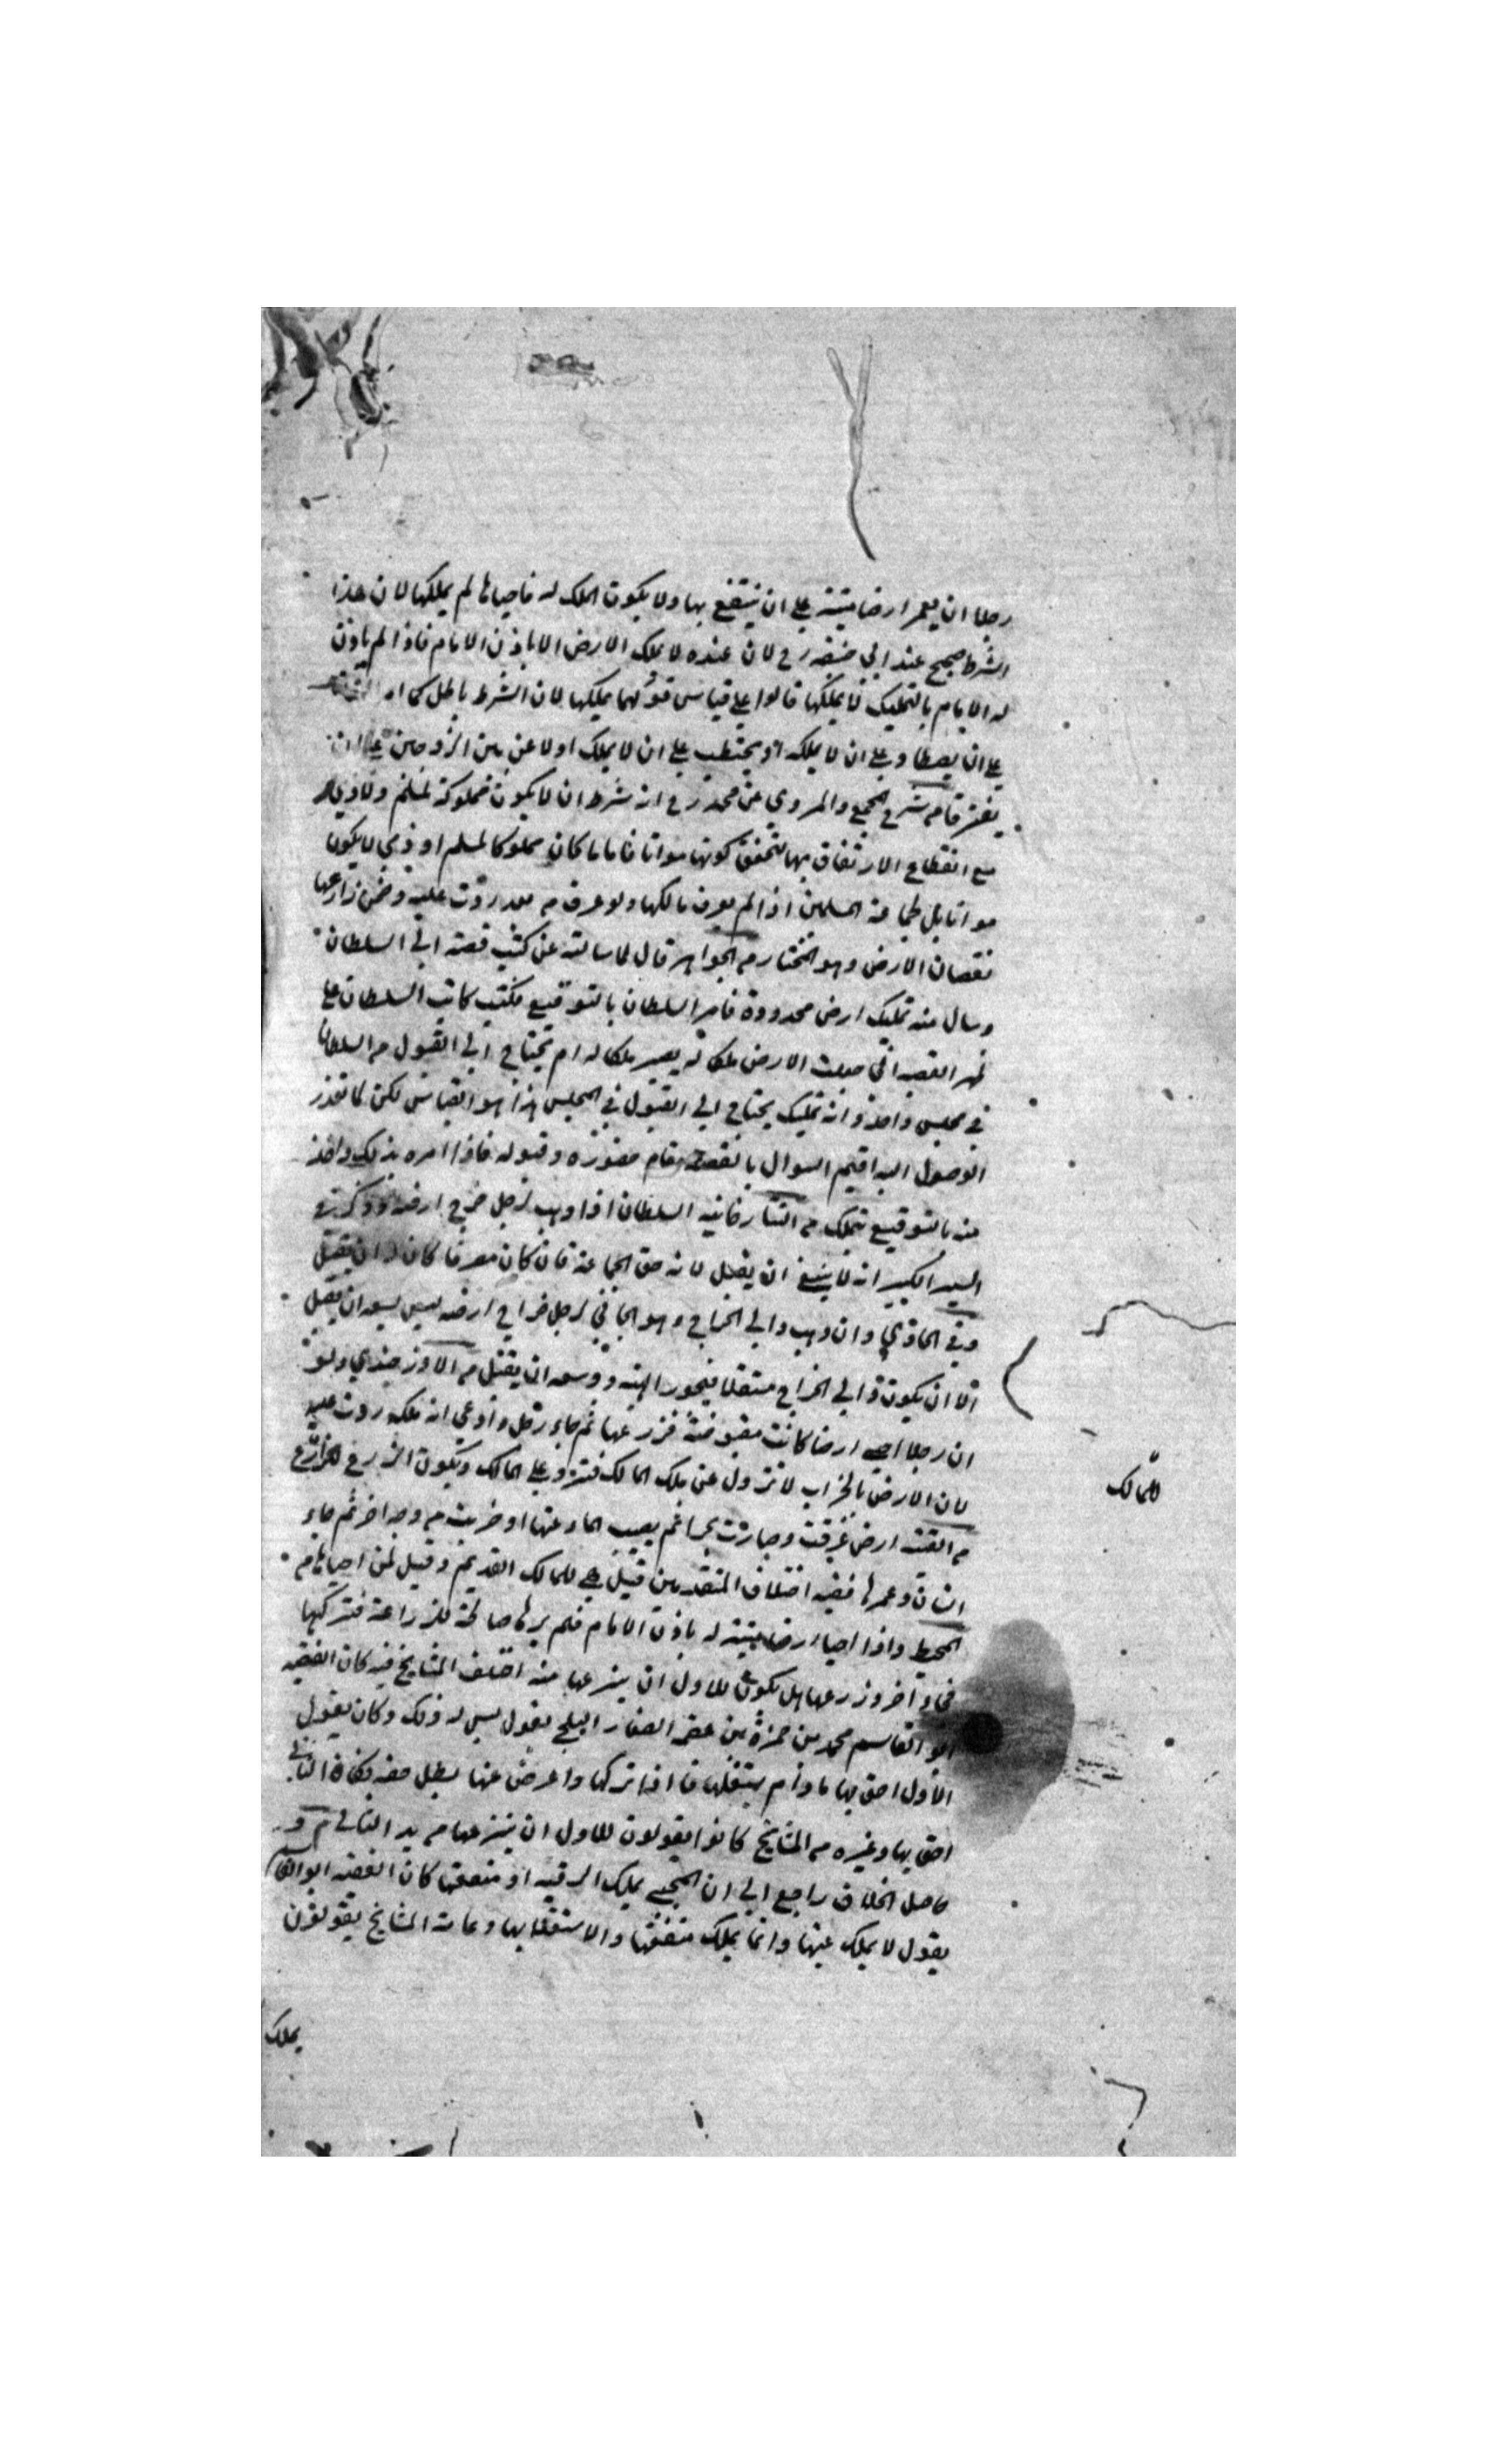 رجلا ان يعمر ارضا ميتة على ان ينتفع بها ولا يكون الملك له فاحياها لم يملكها لان هذا
الشرط صحيح عند ابي حنيفه رح لان عنده لا يملك الارض الا باذن الامام فاذا لم ياذن
له الامام بالتمليك لا يملكها قالوا على قياس قولهما يملكها لان الشرط باطل كما
على ان يصطاد على ان لا يملكه او يحتطب على ان لا يملك او لاعن بين الزوجين على ان
يفترقا م شرح المجمع والمروي عن محمد رح انه شرط ان لا يكون مملوكة لمسلم ولا ذمي
مع انقطاع الارتفاق بها لتحقق كونها مواتا فاما ما كان مملوكا لمسلم او ذمي لا يكون
مواتا بل لجماعة المسلمين اذا لم يعرف مالكها ولو عرف م بعد ردت عليه وضمن زارعها
نقصان الارض وهو المختار م الجواهر قال لما سالته عن كتب قصته الى السلطان
وسال منه تمليك ارض محدودة فامر السلطان بالتوقيع فكتب كاتب السلطان على
ظهر القصة اني جعلت الارض ملكا له يصير ملكا له ام يحتاج الى القبول م السلطان
في مجلس واحد وانه تمليك يحتاج الى القبول في المجلس هذا هو القياس لكن لما تعذر
الوصول اليه اقيم السوال بالقصة مقام حضوره وقبوله فاذا امره بذلك واخذ
منه بالتوقيع تملك م التتارخانيه السلطان اذا وهب لرجل خرج ارضه وذكر في
السير الكبير انه لا ينبغي ان يقبل لانه حق الجماعة فان كان مصرفا كان له ان يقبل
وفي الحاوي وان وهب والي الخراج وهو الجافي لرجل خراج ارضه ليس يسعه ان يقبل
الا ان يكون والي الخراج متقبلا فيجوز الهبة ووسعه ان يقبل م الاوزجندي ولو
ان رجلا احيى ارضا كانت مقبوضة فزرعها ثم جاء رجل وادعى انه ملكه ردت عليه
لان الارض بالخراب لا تزول عن ملك المالك فترد على المالك وتكون الزرع للزارع
م القنية ارض غرقت وصارت بحرا ثم يصيب الماء عنها او خربت م وجه اخر ثم جاء
انسان وعمرها ففيه اختلاف المتقدمين قيل هي للمالك القديم وقيل لمن احياها م
المحيط واذا احيا ارضا ميتة له باذن الامام فلم يرها صالحة للزراعة فتركها
فجاء آخر وزرعها هل يكون للاول ان ينزعها منه اختلف المشايخ فيه كان الفقيه
ابو القاسم محمد بن حمزة بن عصمه الصفار البلخي يقول ليس له ذلك وكان يقول
الاول احق بها ما دام يستغلها فاذا تركها واعرض عنها بطل حقه فكان الثاني
احق بها وغيره م المشايخ كانوا يقولون للاول ان ينزعها م يد الثاني م و
حاصل الخلاف راجع الى ان المحيي يملك الرقبه او منفعتها كان الفقيه ابو القا
يقول لا يملك عينها وانما يملك منفعتها والاستغلال بها وعامة المشايخ يقولون
للمالك
يملك